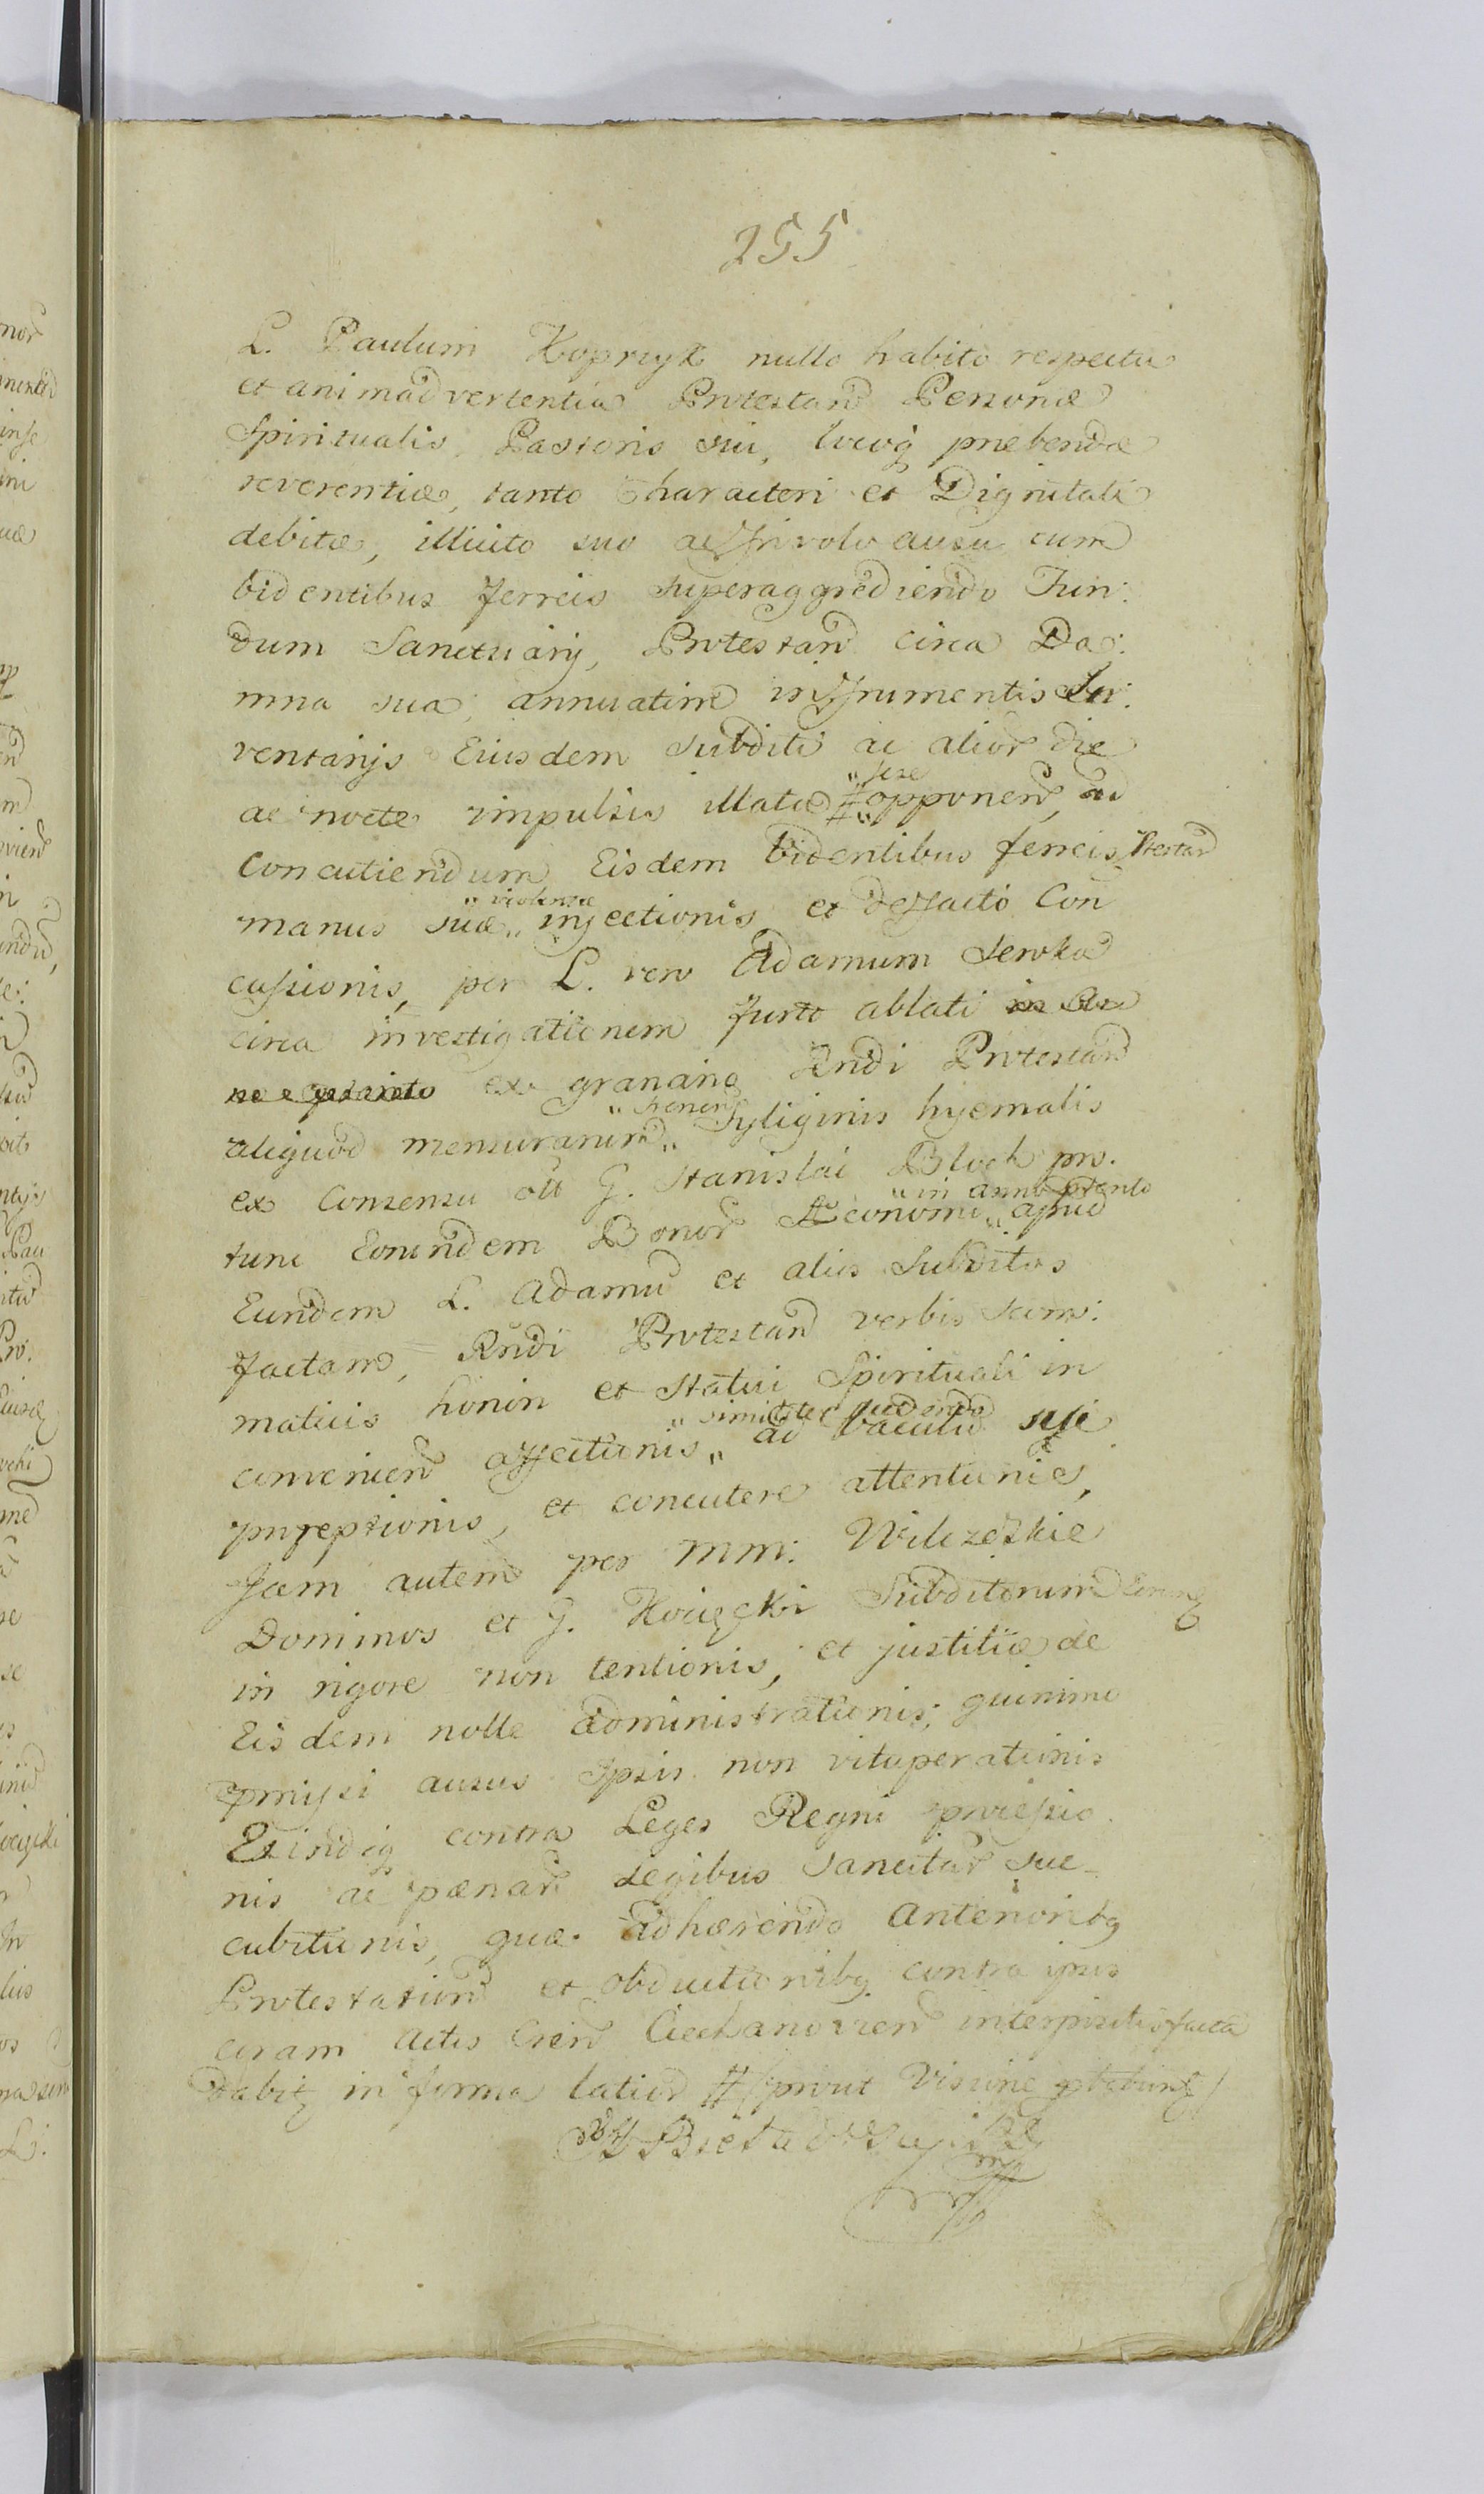 255
L. Paulum Kopczyk nullo habito respectu
et animadvertentia Protestand Personæ
Spiritualis, Pastoris sui, locoq præbendæ
reverentiæ, tanto Characteri et Dignitati
debitæ, illicito suo ac frivolo ausu cum
bidentibus ferreis superaggrediendo Fun:
dum Sanctuarij, Protestan circa Da:
mna sua annuatim in frumentis
ventarijs Eiusdem subditi ac alior die
ac nocte impulsis illata " sese
# opponen, ad
Concutiendum Eisdem bidentibus ferreis, Ptestan
manus suæ " violentæ " injectionis et de facto Con
cussionis, per L. vero Adamum Seroka
circa investigationem furto ablati
ex granario Rndi Protestan
aliquod mensurarum " " Syliginis hyemalis
ex Consensu olt G. Stanislai Bloch pro.
tunc Eorundem Bonor Æconomi " in anno " apud
Eundem L. Adamu et alios Subditos
factam, Rndi Protestan verbis scom:
maticis honori et Statui Spirituali in
convenien affectionis " similiter " ad baculu sui
prreptionis, et concutere attentionis,
Jam autem per MM: Wilczeskie
Dominos et G. Kocięcki Subditorum
in rigore non tentionis, et justitiæ de
Eisdem nolle administrationis; quinimo
pmissi ausus Ipsis non vituperationis
Exindeq contra Leges Regni
nis ac pœnar legibus sancitar suc-
cubitionis, quæ adhærendo Anteriorib9
Protestation et obductionib9 contra ipsos
coram Actis Cren Ciechanovien interpositis facta
dabit in forma latior # /prout Visione ptebunt/